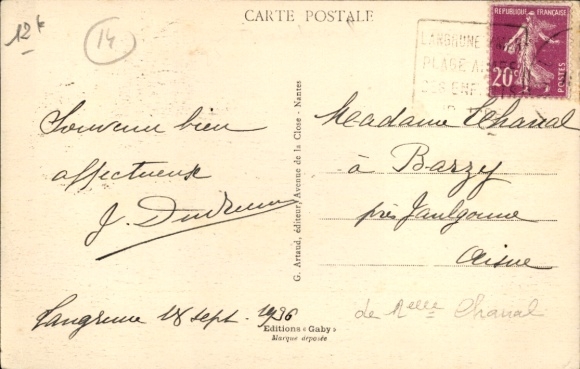 CARTE POSTALE
12 f
14
LANGRUNE
PLAGE A
DES ENF
REPUBLIQUE FRANÇAISE
20c
POSTES
Souvenir bien
affectueux
J.
Langrune 18 sept. 1936
G. Artaud, éditeur, Avenue de la Close - Nantes
Editions « Gaby »
Marque déposée
Madame Chanal
à Barzy
près Jaulgonne
Aisne
de Melle Chanal